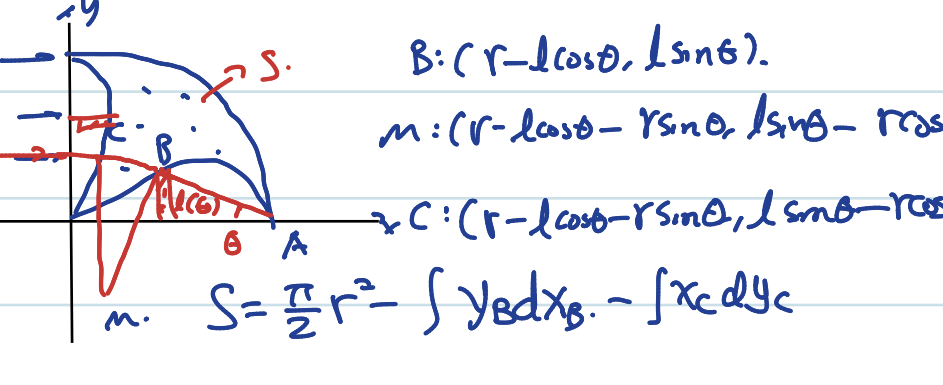 y
S.
B: (r-lcosθ, lsinθ).
C
m: (r-lcosθ-rsinθ, lsinθ-rcos
B
l(θ)
x
C: (r-lcosθ-rsinθ, lsinθ-rcos
θ
A
m.
S = π/2 r² - ∫ y_B dx_B. - ∫ x_C dy_C